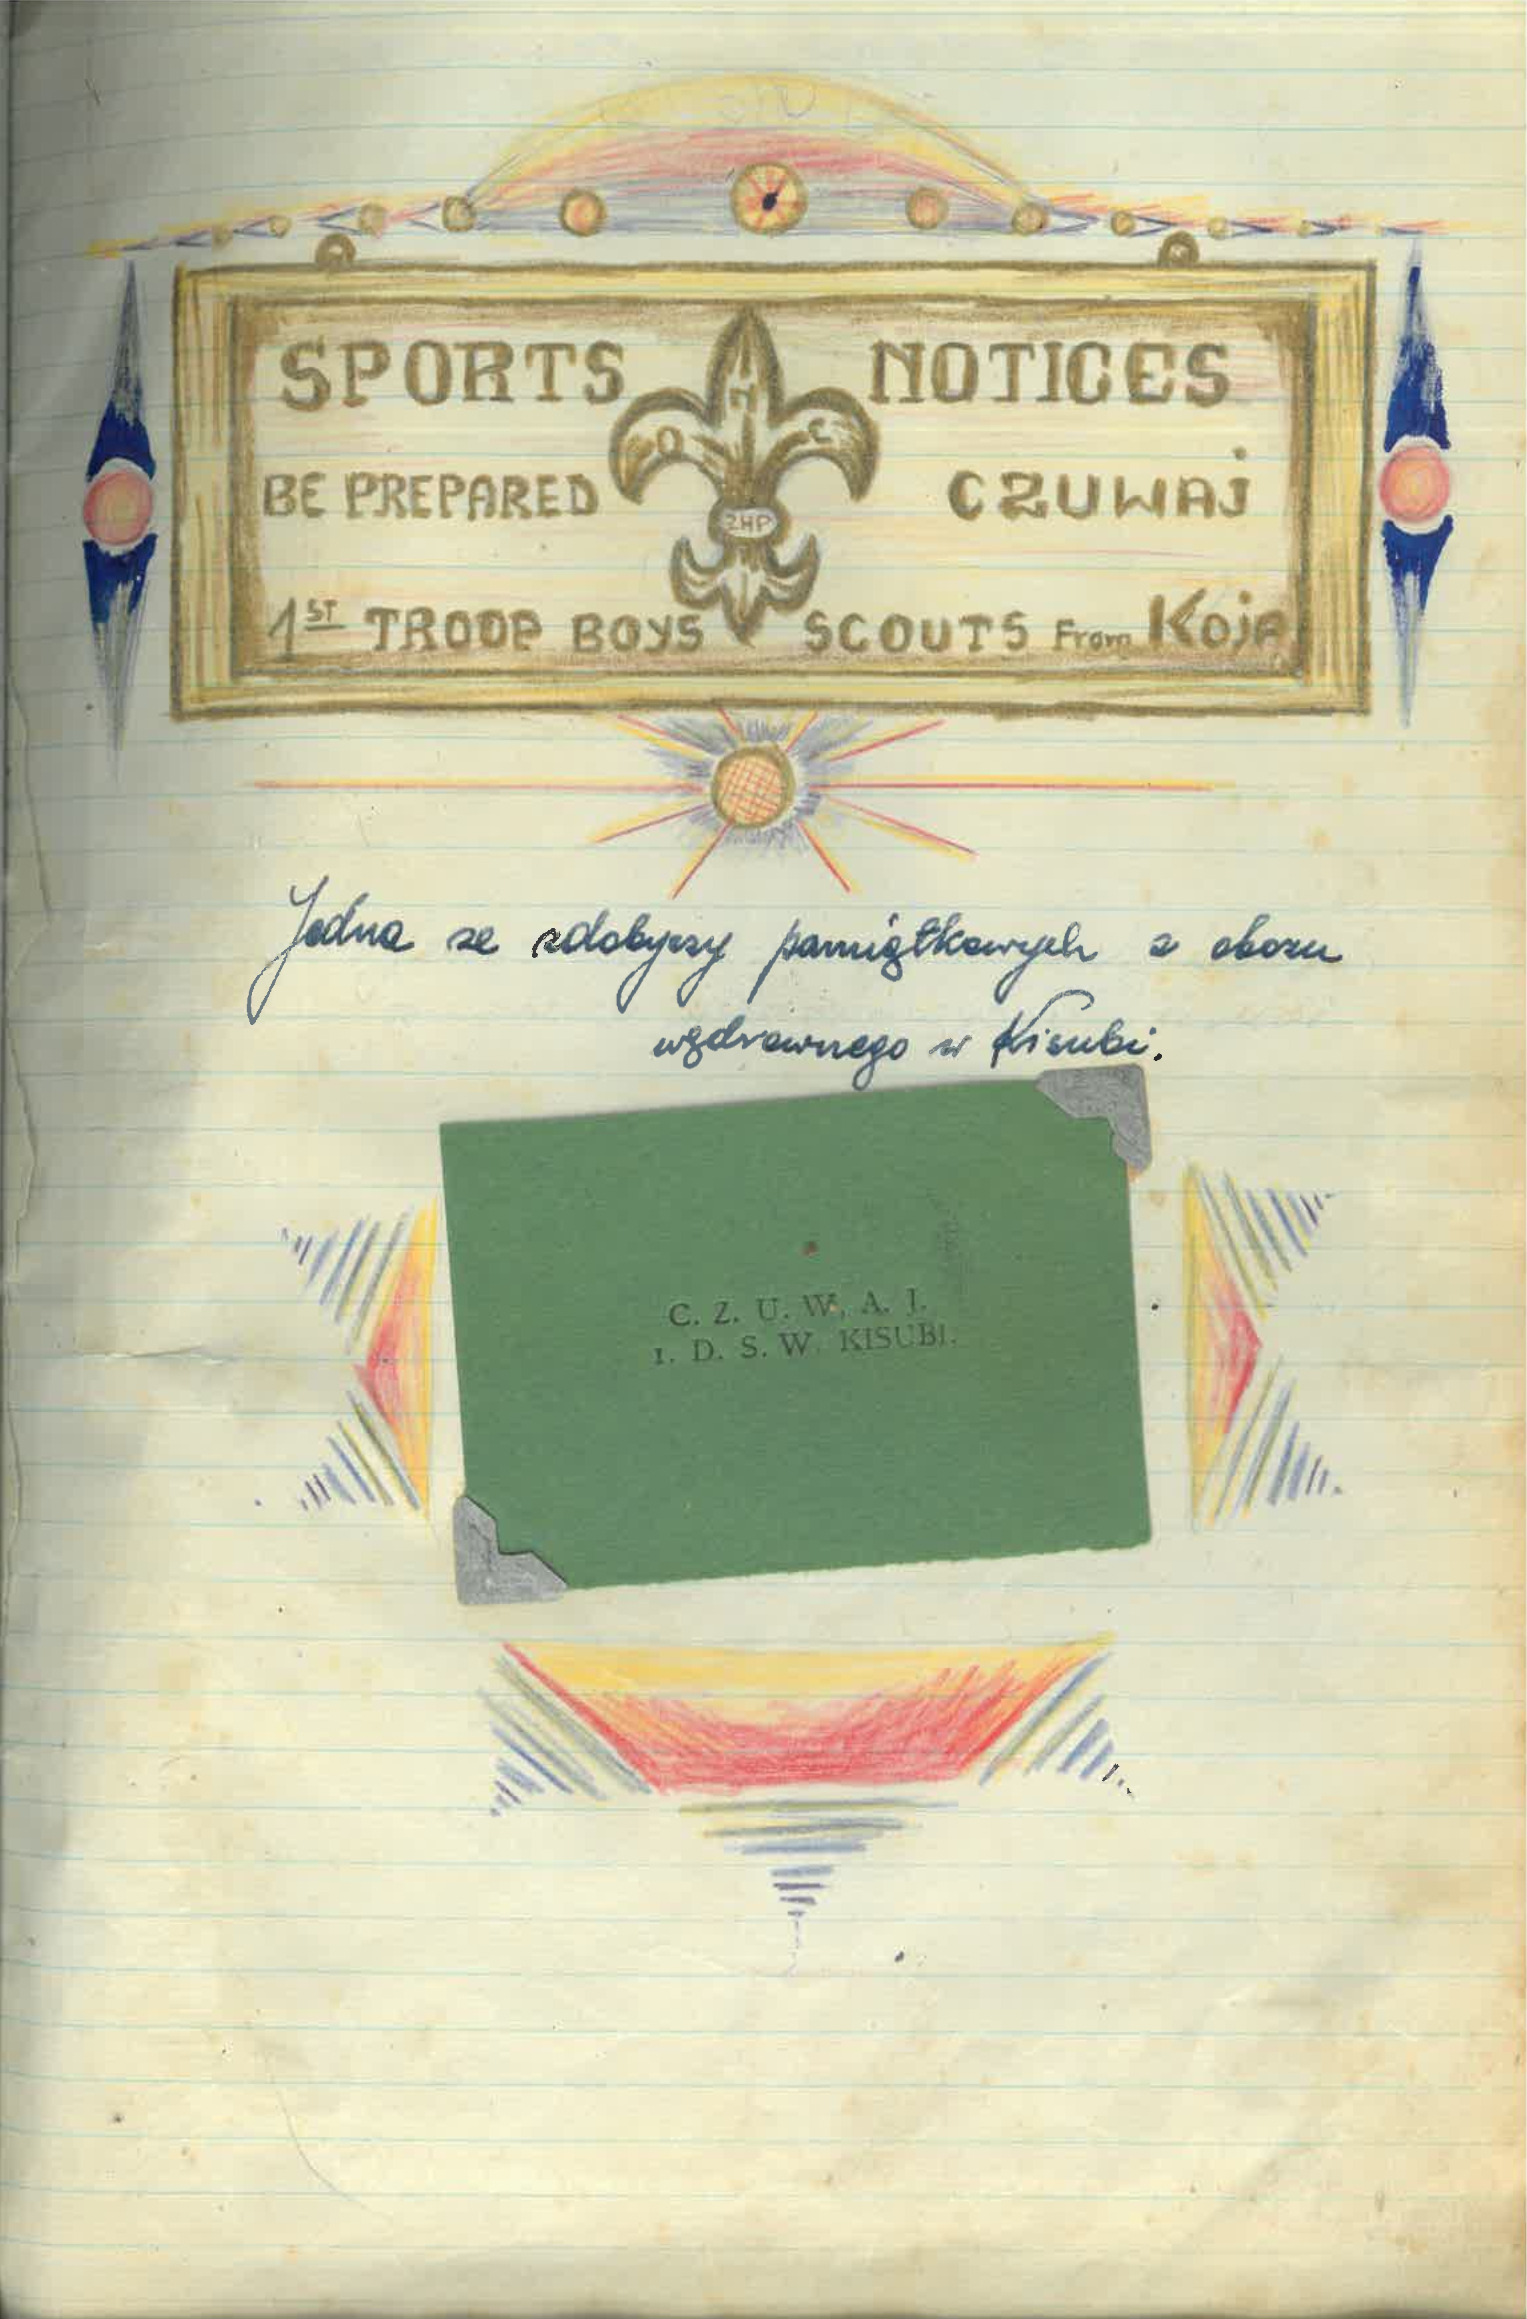 SPORTS NOTICES
O N C
BE PREPARED CZUWAJ
ZHP
1ST TROOP BOYS SCOUTS From Koja
Jedna ze zdobyczy pamiątkowych z obozu
wędrownego w Kisubi.
C. Z. U. W. A. J.
1. D. S. W. KISUBI.